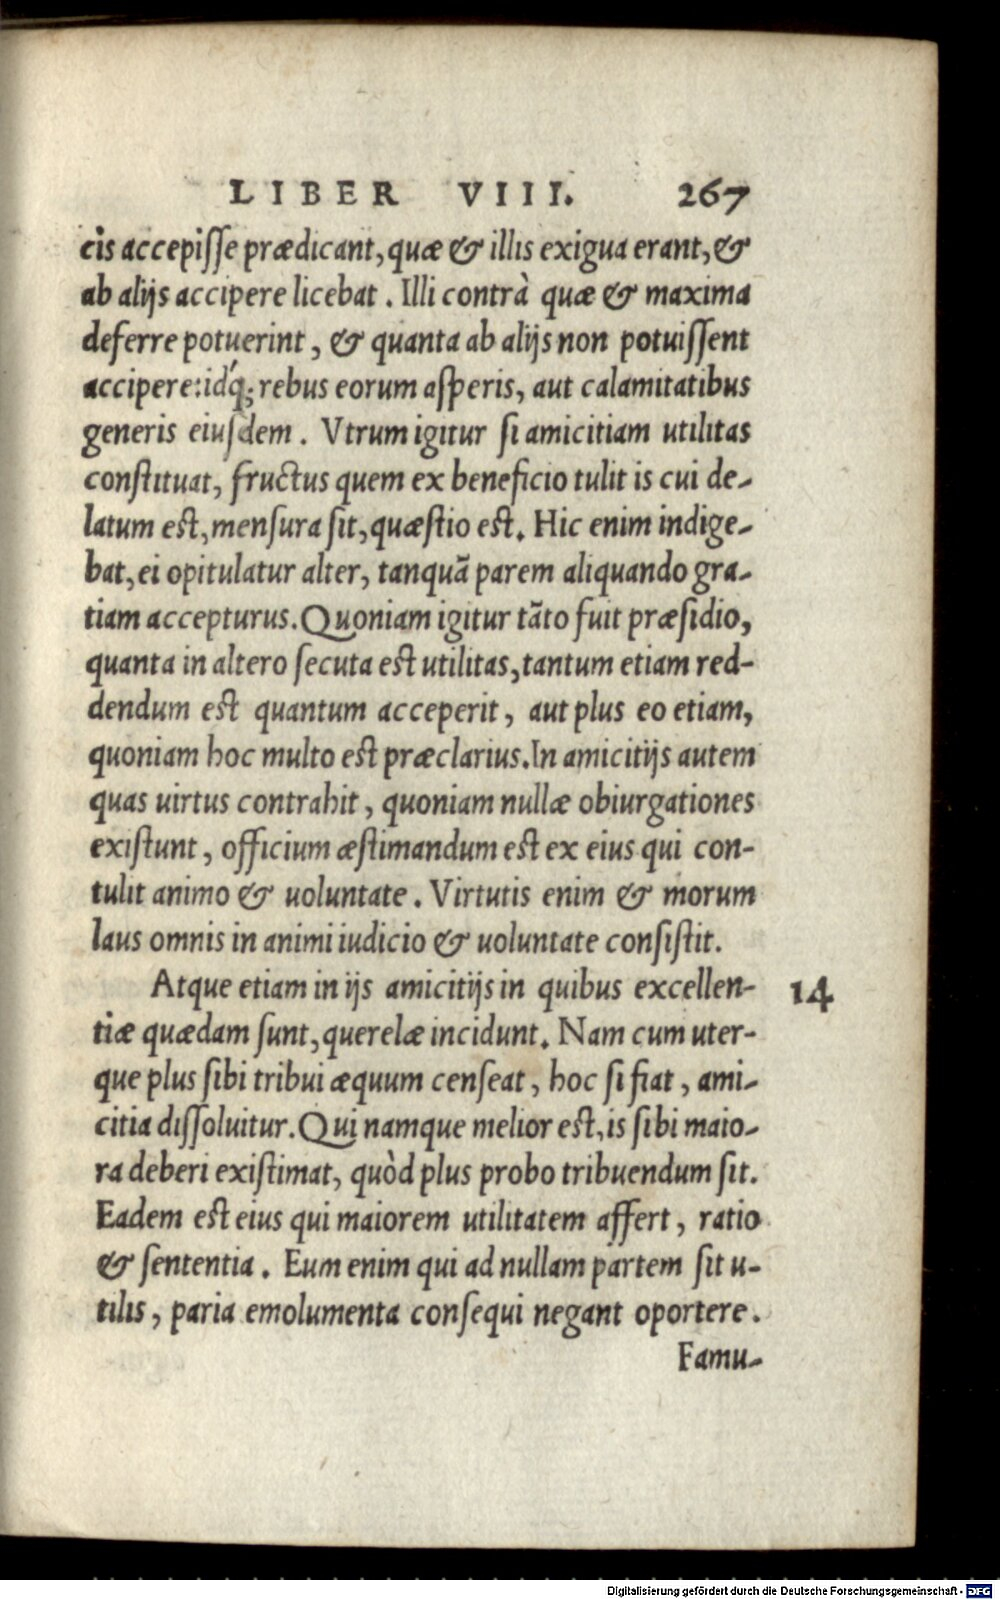 LIBER VIII. 267
cis accepisse prædicant, quæ & illis exigua erant, &
ab alijs accipere licebat. Illi contrà quæ & maxima
deferre potuerint, & quanta ab alijs non potuissent
accipere: idq́; rebus eorum asperis, aut calamitatibus
generis eiusdem. Vtrum igitur si amicitiam utilitas
constituat, fructus quem ex beneficio tulit is cui de-
latum est, mensura sit, quæstio est. Hic enim indige-
bat, ei opitulatur alter, tanquã parem aliquando gra-
tiam accepturus. Quoniam igitur tãto fuit præsidio,
quanta in altero secuta est utilitas, tantum etiam red-
dendum est quantum acceperit, aut plus eo etiam,
quoniam hoc multo est præclarius. In amicitijs autem
quas uirtus contrahit, quoniam nullæ obiurgationes
existunt, officium æstimandum est ex eius qui con-
tulit animo & uoluntate. Virtutis enim & morum
laus omnis in animi iudicio & uoluntate consistit.
Atque etiam in ijs amicitijs in quibus excellen- 14
tiæ quædam sunt, querelæ incidunt. Nam cum uter-
que plus sibi tribui æquum censeat, hoc si fiat, ami-
citia dissoluitur. Qui namque melior est, is sibi maio-
ra deberi existimat, quòd plus probo tribuendum sit.
Eadem est eius qui maiorem utilitatem affert, ratio
& sententia. Eum enim qui ad nullam partem sit u-
tilis, paria emolumenta consequi negant oportere.
Famu-
Digitalisierung gefördert durch die Deutsche Forschungsgemeinschaft - DFG